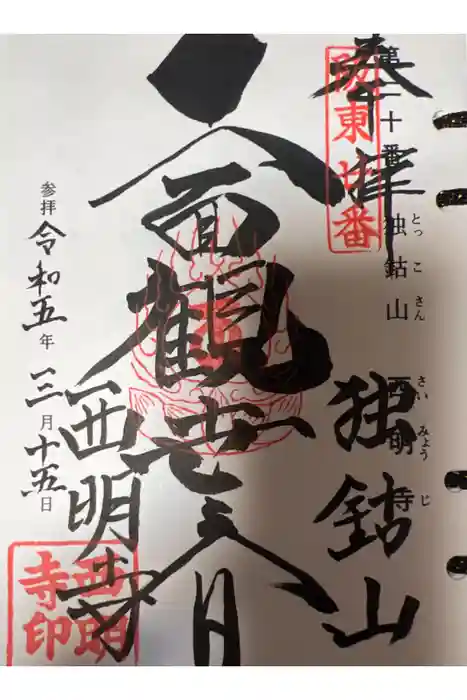 奉拝
坂東廿番
第二十番 独鈷山 西明寺
とっこさん さいみょうじ
独鈷山
十一面観世音
西明寺
西明寺印
参拝 令和五年 三月十五日